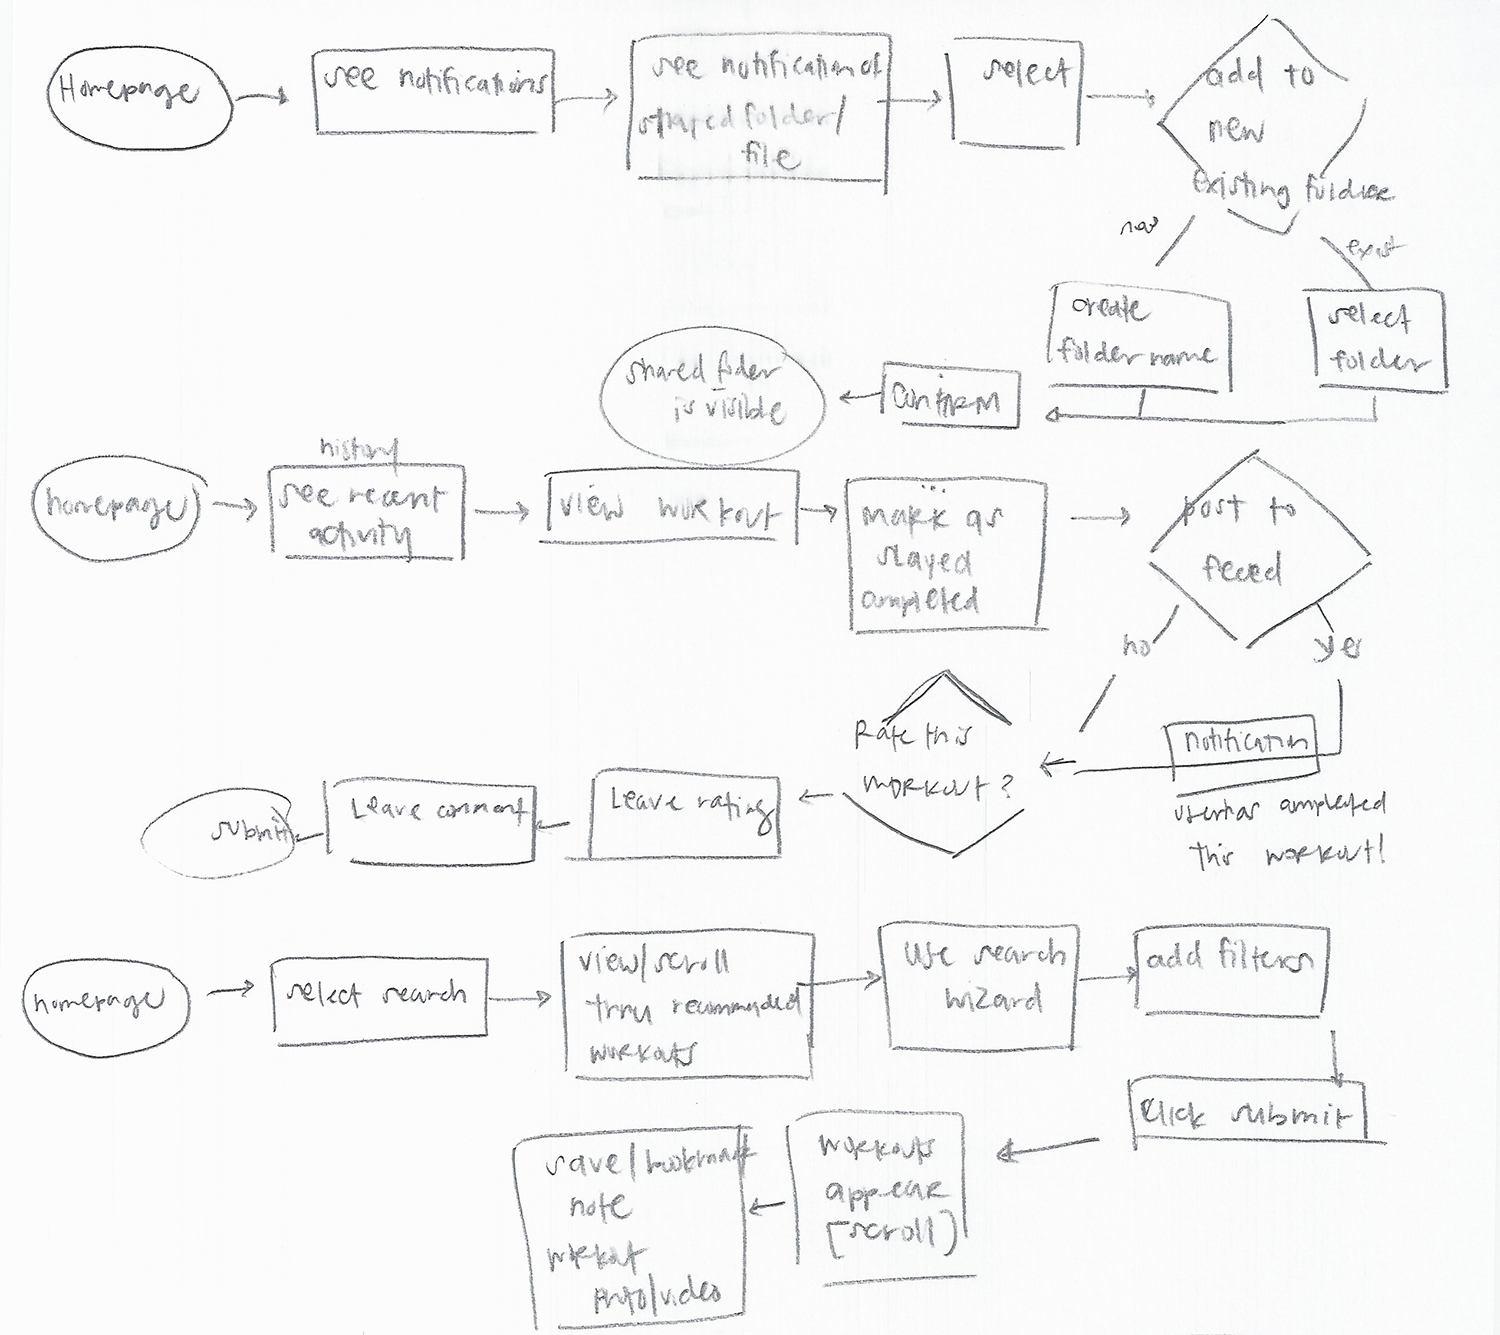 Homepage
see notifications
see notification of
shared folder/
file
select
add to
new
existing folder
new
exist
create
folder name
select
folder
confirm
shared folder
is visible
homepage
history
see recent
activity
view workout
...
mark as
slayed
completed
post to
feeed
no
yes
notification
user has completed
this workout!
Rate this
workout?
Leave rating
Leave comment
submit
homepage
select search
view/scroll
thru recommended
workouts
use search
wizard
add filters
click submit
workouts
appear
[scroll)
save/bookmark
note
workout
photo/video